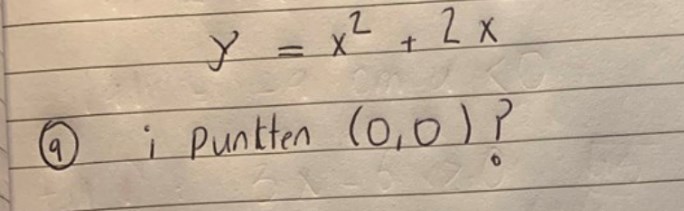 y = x² + 2x
(a) i punkten (0,0)?